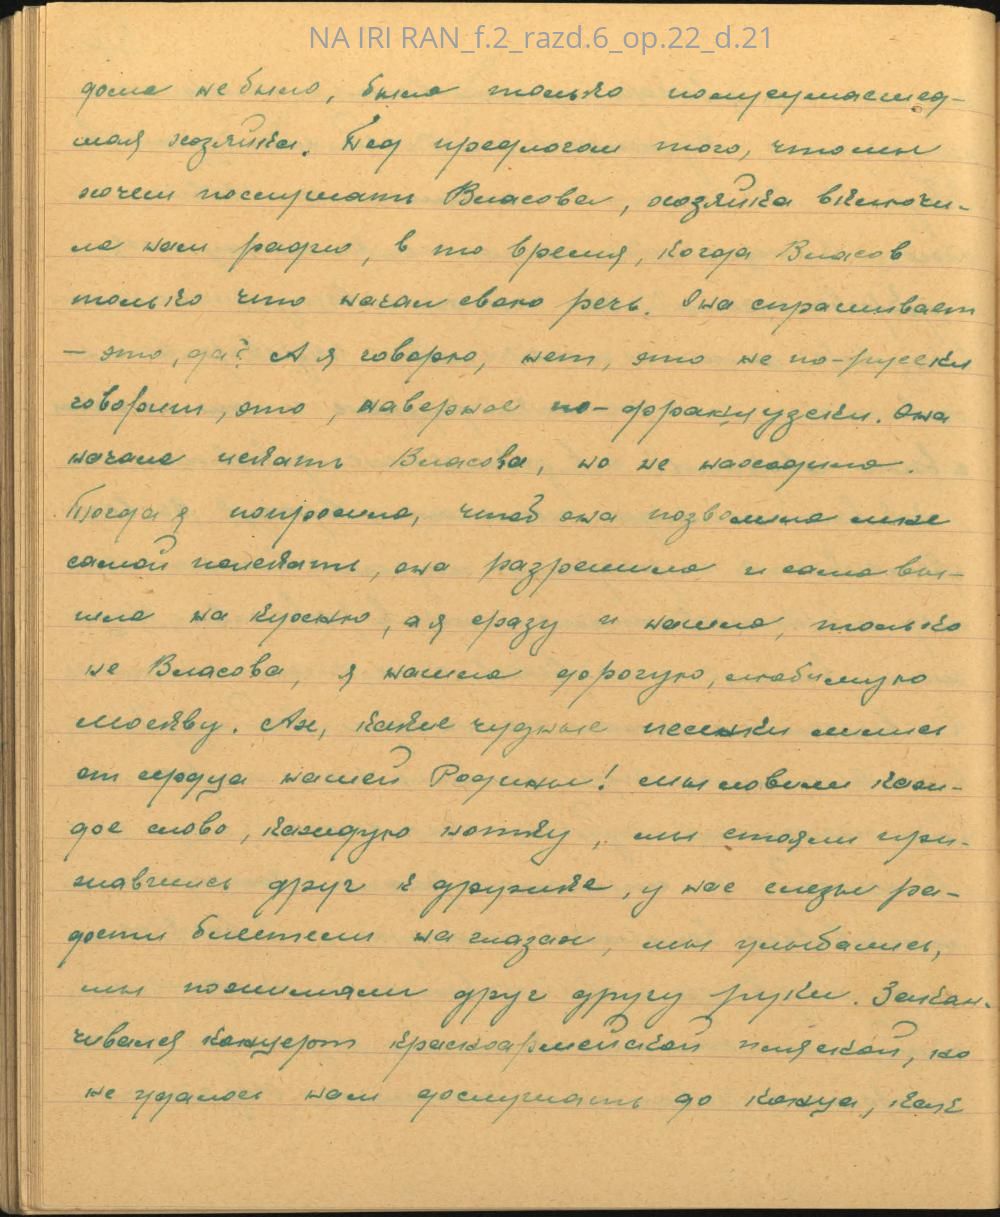 NA IRI RAN_f.2_razd.6_op.22_d.21
дома не было, была только полусумасшед-
шая хозяйка. Под предлогом того, что мы
хочем послушать Власова, хозяйка включи-
ла нам радио, в то время, когда Власов
только что начал свою речь. Она спрашивает
– это, да? А я говорю, нет, это не по-русски
говорят, это, наверное по-французски. Она
начала искать Власова, но не находила.
Тогда я попросила, чтоб она позволила мне
самой поискать, она разрешила и сама вы-
шла на кухню, а я сразу и нашла, только
не Власова, я нашла дорогую, любимую
Москву. Ах, какие чудные песенки лились
от сердца нашей Родины! Мы ловили каж-
дое слово, каждую нотку, мы стояли при-
жавшись друг к дружке, у нас слезы ра-
дости блестели на глазах, мы улыбались,
мы пожимали друг другу руки. Закан-
чивался концерт красноармейской пляской, но
не удалось нам дослушать до конца, как